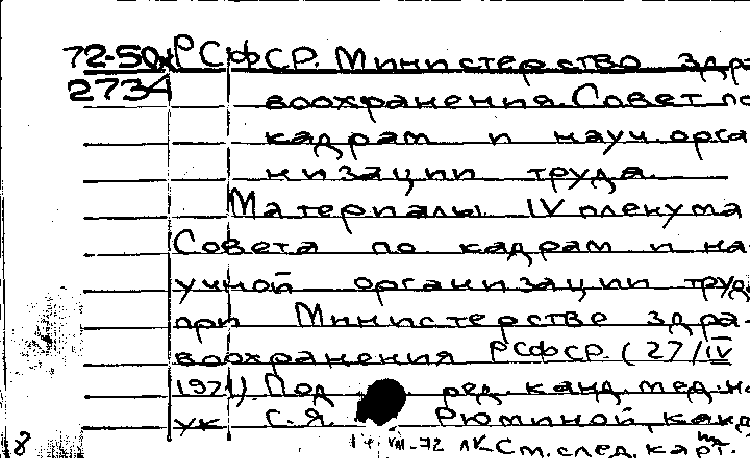 72-50 РСФСР. Министерство здра
2734 воохранения. Совет по
кадрам и науч. орга
низации труда.
Материалы IV пленума
Совета по кадрам и на-
учной организации труда
при Министерстве здра-
воохранения РСФСР. (27/IV
1971). Под ред. канд. мед. на
ук С.Я. Рюминой, канд
См. след. карт.
8